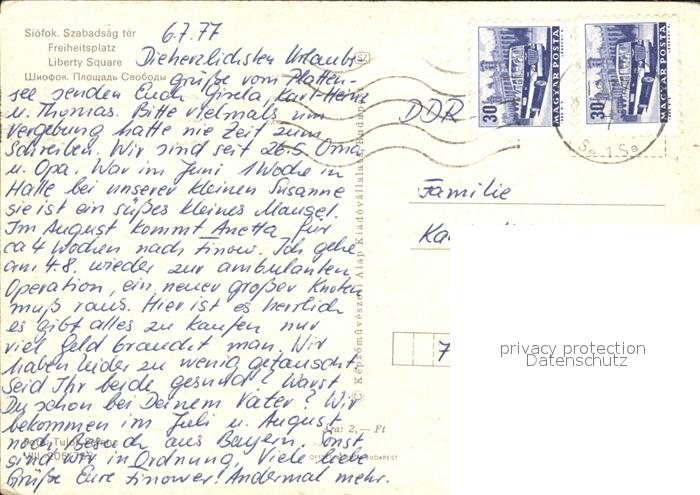 Siófok. Szabadság tér
Freiheitsplatz
Liberty Square
Шиофок. Площадь Свободы
6.7.77
Die herzlichsten Urlaubs-
grüße vom Platten-
see senden Euch Gisela, Karl-Heinz
u. Thomas. Bitte vielmals um
Vergebung hatte nie Zeit zum
Schreiben. Wir sind seit 26.5. Oma
u. Opa. War im Juni 1 Woche in
Halle bei unserer kleinen Susanne
sie ist ein süßes kleines Maugel.
Im August kommt Anetta für
ca 4 Wochen nach Finow. Ich gehe
am 4.8. wieder zur ambulanten
Operation, ein neuer großer Knoten
muß raus. Hier ist es herrlich
es gibt alles zu kaufen nur
viel Geld braucht man. Wir
haben leider zu wenig getauscht.
Seid Ihr beide gesund? Warst
Du schon bei Deinem Vater? Wir
bekommen im Juli u. August
noch Besuch aus Bayern. Sonst
sind wir in Ordnung. Viele liebe
Grüße Eure Finower! Andermal mehr.
Ára: 2,— Ft
BUDAPEST
© Képzőművészeti Alap Kiadóvállalata, Budapest
30 f
MAGYAR POSTA
30 f
MAGYAR POSTA
DDR
Familie
Ka
7
privacy protection
Datenschutz